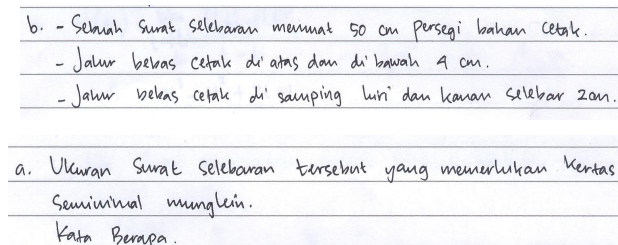 b. - Sebuah Surat selebaran memuat 50 cm persegi bahan cetak.
- Jalur bebas cetak di atas dan di bawah 4 cm.
- Jalur bebas cetak di samping kiri dan kanan selebar 2cm.
a. Ukuran Surat selebaran tersebut yang memerlukan kertas
Seminimal mungkin.
Kata Berapa.